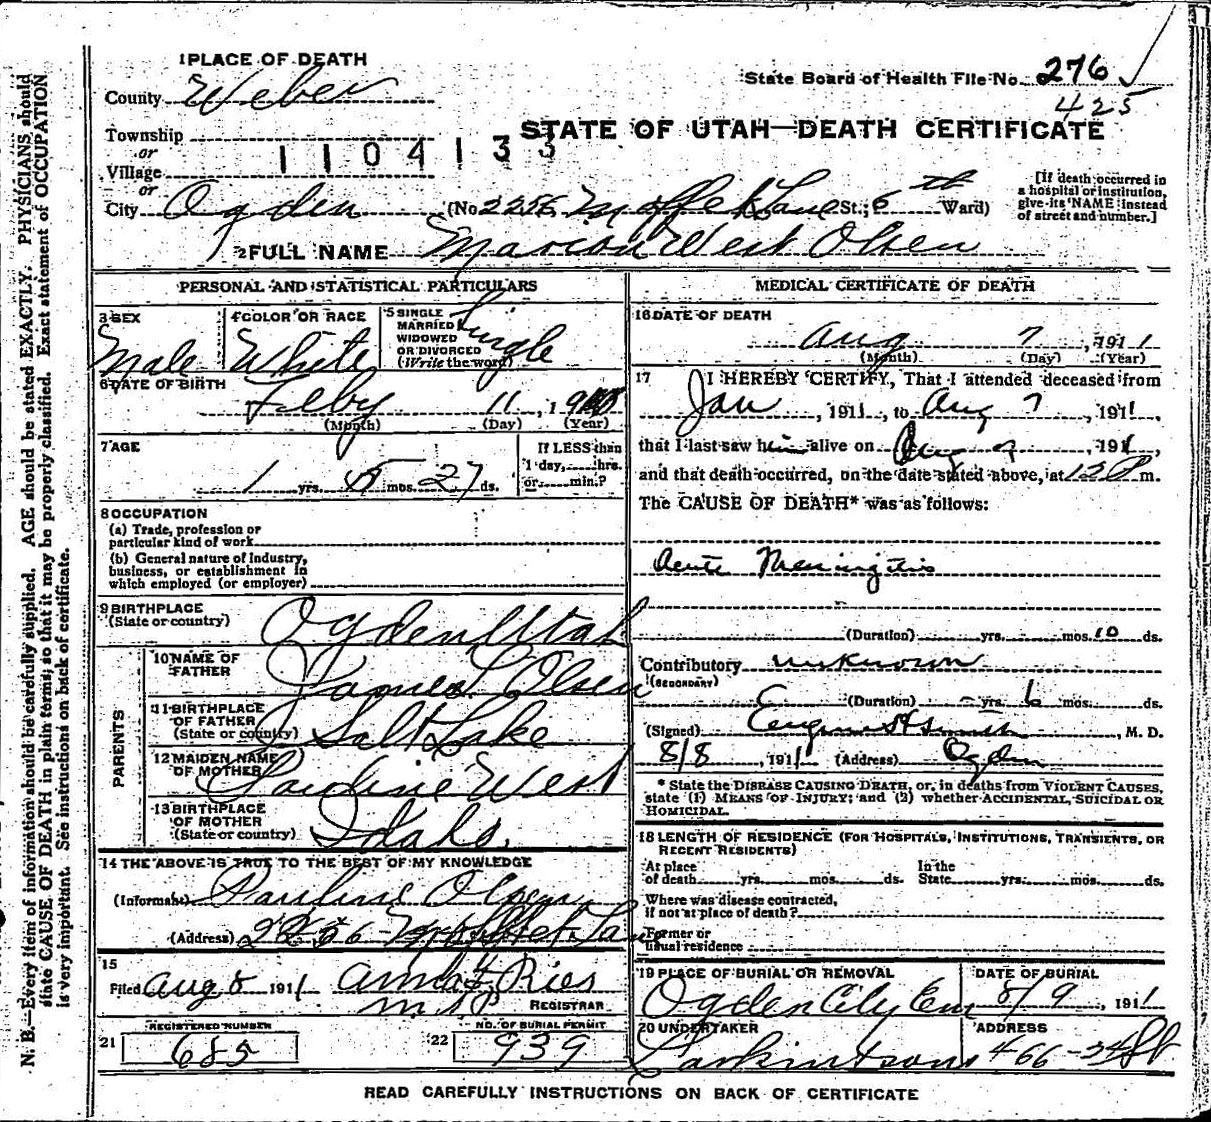 1 PLACE OF DEATH
County Weber
State Board of Health File No. 276
425
Township
or
Village
1104133
STATE OF UTAH—DEATH CERTIFICATE
or
City Ogden (No. 2256 Moffet Lane St.; 6th Ward)
[If death occurred in
a hospital or institution,
give its NAME instead
of street and number.]
2 FULL NAME Marion West Olsen
PERSONAL AND STATISTICAL PARTICULARS
3 SEX
Male
4 COLOR OR RACE
White
5 SINGLE
MARRIED
WIDOWED
OR DIVORCED
(Write the word)
Single
6 DATE OF BIRTH
Feby 11, 19
(Month) (Day) (Year)
7 AGE
1 yrs. 5 mos. 27 ds.
If LESS than
1 day, hrs.
or min.?
8 OCCUPATION
(a) Trade, profession or
particular kind of work
(b) General nature of industry,
business, or establishment in
which employed (or employer)
9 BIRTHPLACE
(State or country)
Ogden Utah
PARENTS
10 NAME OF
FATHER
James L Olsen
11 BIRTHPLACE
OF FATHER
(State or country)
Salt Lake
12 MAIDEN NAME
OF MOTHER
Pauline West
13 BIRTHPLACE
OF MOTHER
(State or country)
Idaho.
14 THE ABOVE IS TRUE TO THE BEST OF MY KNOWLEDGE
(Informant) Pauline Olsen
(Address) 2256 Moffet Lan
15
Filed Aug 8 1911 Anna Ries
REGISTRAR
REGISTERED NUMBER
21 685
NO. OF BURIAL PERMIT
22 939
MEDICAL CERTIFICATE OF DEATH
16 DATE OF DEATH
Aug 7, 1911
(Month) (Day) (Year)
17 I HEREBY CERTIFY, That I attended deceased from
Jan, 1911, to Aug 7, 1911,
that I last saw him alive on Aug 7, 1911,
and that death occurred, on the date stated above, at 130 P m.
The CAUSE OF DEATH* was as follows:
Acute Meningitis
(Duration) yrs. mos. 10 ds.
Contributory unknown
(SECONDARY)
(Duration) - yrs. 6 mos. ds.
(Signed) Eugene H Smith, M. D.
8/8, 1911 (Address) Ogden
* State the DISEASE CAUSING DEATH, or, in deaths from VIOLENT CAUSES,
state (1) MEANS OF INJURY; and (2) whether ACCIDENTAL, SUICIDAL OR
HOMICIDAL.
18 LENGTH OF RESIDENCE (FOR HOSPITALS, INSTITUTIONS, TRANSIENTS, OR
RECENT RESIDENTS)
At place
of death yrs. mos. ds.
In the
State yrs. mos. ds.
Where was disease contracted,
if not at place of death?
Former or
usual residence
19 PLACE OF BURIAL OR REMOVAL
Ogden City Cem
DATE OF BURIAL
8/9, 1911
20 UNDERTAKER
Larkin & Sons
ADDRESS
466-24 St
READ CAREFULLY INSTRUCTIONS ON BACK OF CERTIFICATE
N. B.—Every item of information should be carefully supplied. AGE should be stated EXACTLY. PHYSICIANS should
state CAUSE OF DEATH in plain terms, so that it may be properly classified. Exact statement of OCCUPATION
is very important. See instructions on back of certificate.